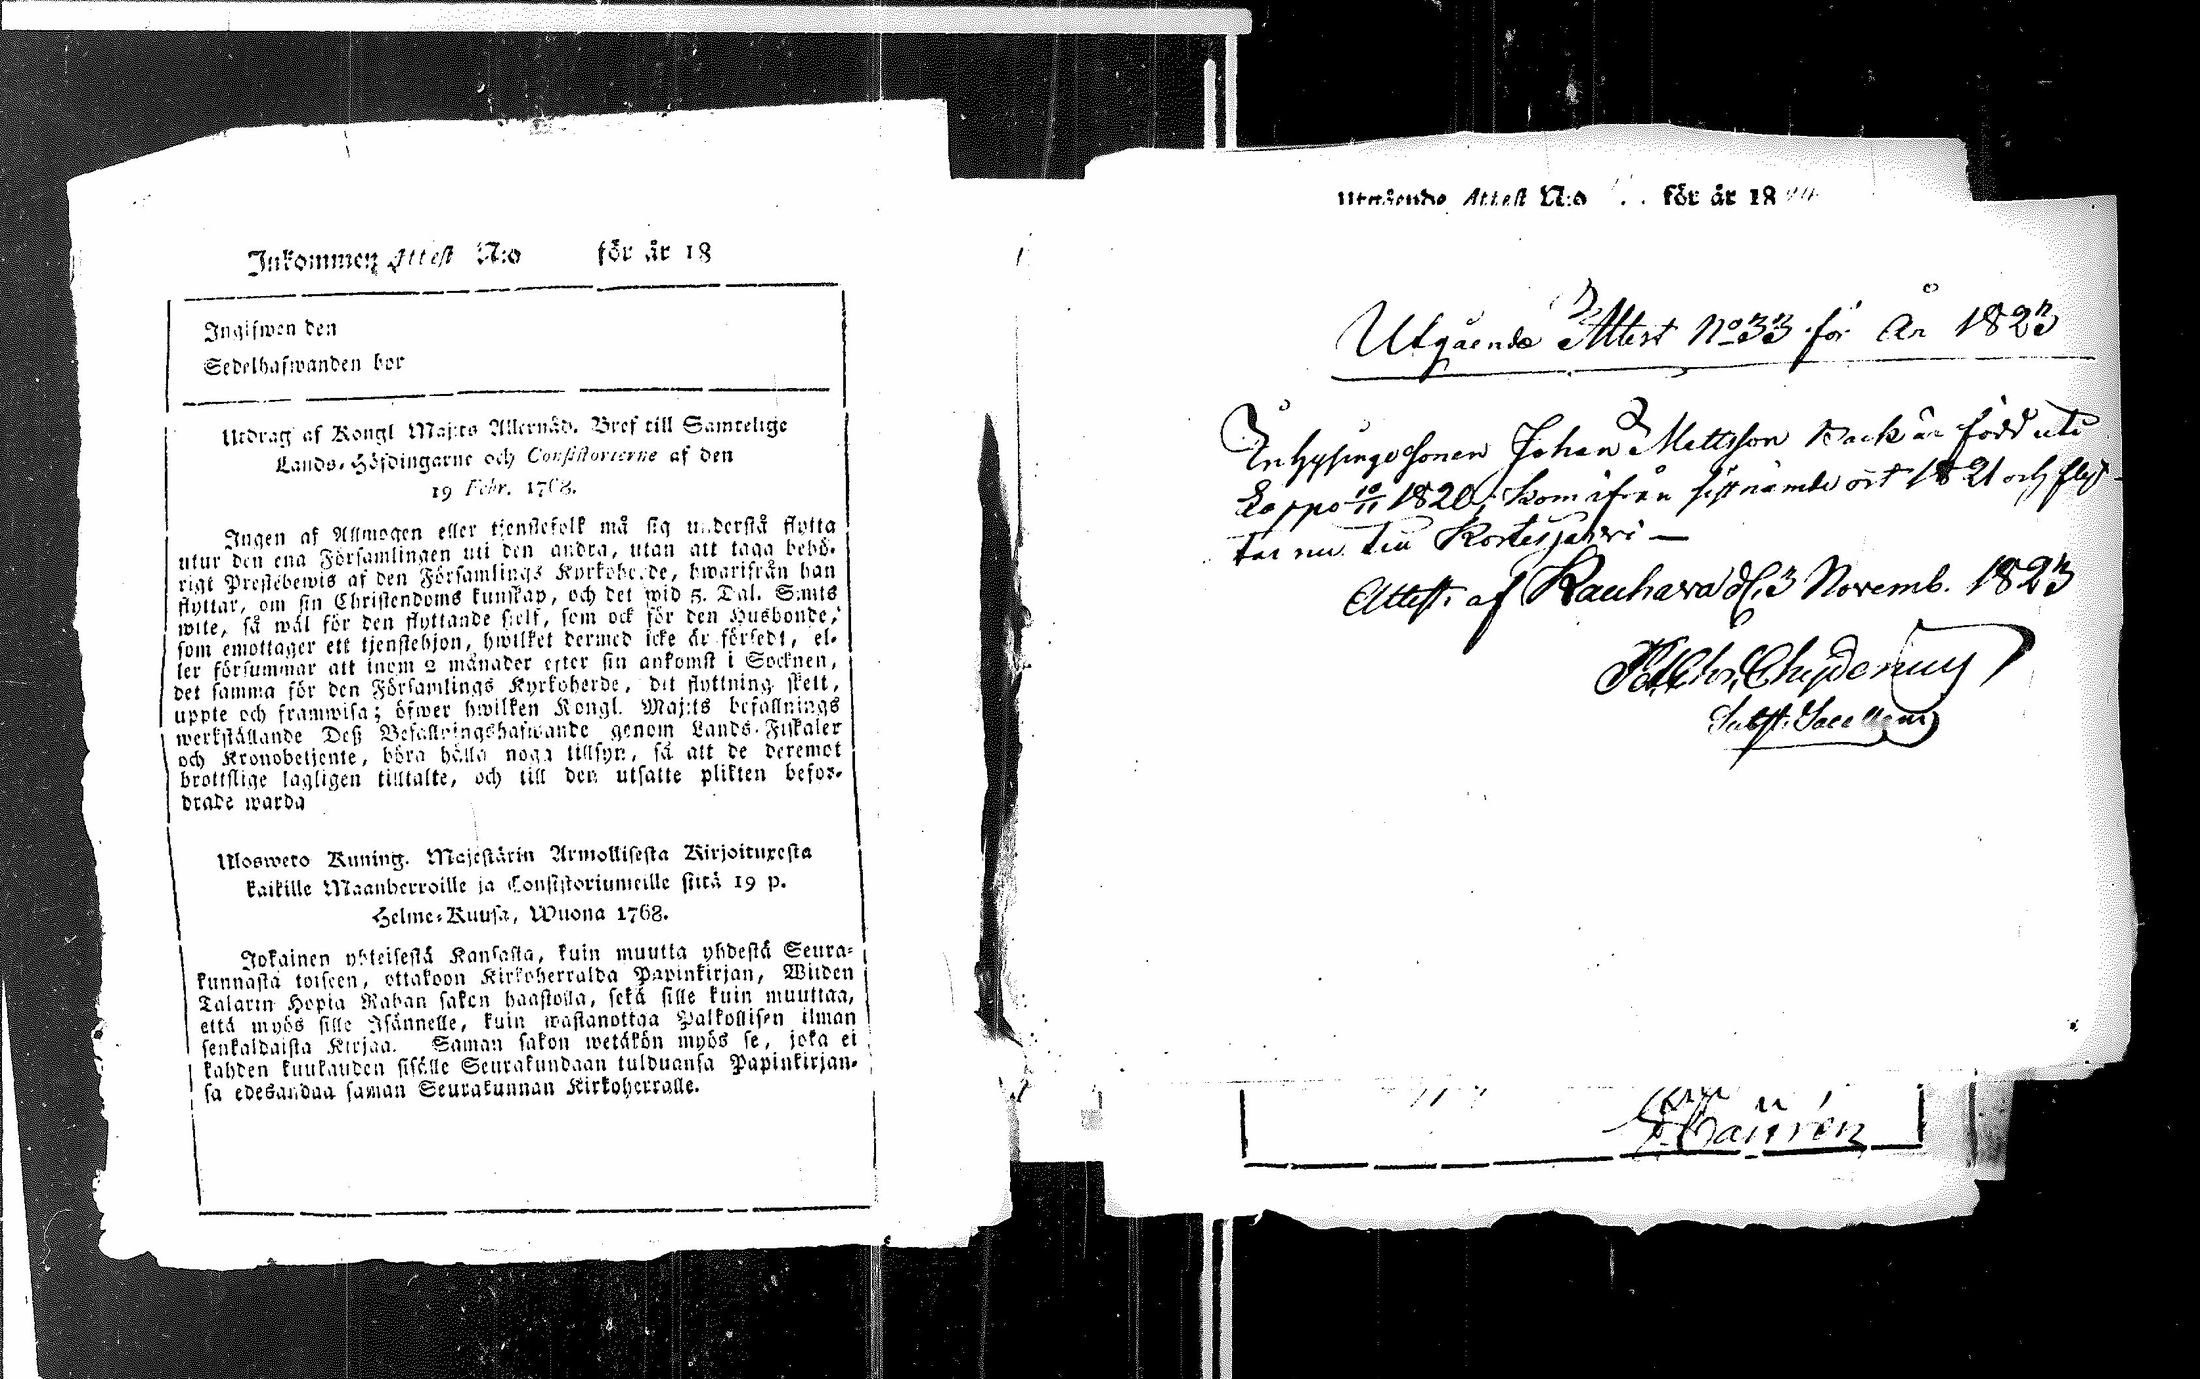 Inkommen Attest N:o för år 18
Ingifwen den
Sedelhafwanden bor
Utdrag af Kongl Maj:ts Allernåd. Bref till Samtelige
Lands-Höfdingarne och Consistorierne af den
19 Febr. 1768.
Ingen af Allmogen eller tjenstefolk må sig understå flytta
utur den ena Församlingen uti den andra, utan att taga behö-
rigt Prestebewis af den Församlings Kyrkoherde, hwarifrån han
flyttar, om sin Christendoms kunskap, och det wid 5. Dal. S:mts
wite, så wäl för den flyttande sielf, som ock för den Husbonde,
som emottager ett tjenstehjon, hwilket dermed icke är försedt, el-
ler försummar att inom 2 månader efter sin ankomst i Socknen,
det samma för den Församlings Kyrkoherde, dit flyttning skett,
uppte och framwisa; öfwer hwilken Kongl. Maj:ts befallnings
werkställande Deß Befallningshafwande genom Lands-Fiskaler
och Kronobetjente, böra hålla noga tillsyn, så att de deremot
brottslige lagligen tilltalte, och till den utsatte plikten befor-
drade warda
Ulosweto Kuning. Majestärin Armollisesta Kirjoituxesta
kaikille Maanherroille ja Consistoriumeille siitä 19 p.
Helme-Kuusa, Wuona 1768.
Jokainen yhteisestä Kansasta, kuin muutta yhdestä Seura-
kunnasta toiseen, ottakoon Kirkoherralda Papinkirjan, Wiiden
Talarin Hopia Rahan sakon haastolla, sekä sille kuin muuttaa,
että myös sille Isännelle, kuin wastanottaa Palkollisen ilman
senkaldaista Kirjaa. Saman sakon wetäkön myös se, joka ei
kahden kuukauden sisälle Seurakundaan tulduansa Papinkirjan-
sa edesandaa saman Seurakunnan Kirkoherralle.
Utgående Attest N:o för år 18
Utgående Attest No 33 för År 1823
Inhysinge Sonen Johan Mattsson Back är född uti
Lappo 10/11 1820, kom ifrån sistnämde ort 1821 och flyt-
tar nu till Kortesjärvi —
Attest. af Kauhava d. 3 Novemb. 1823
Chydenius
Subst. Sacellanus